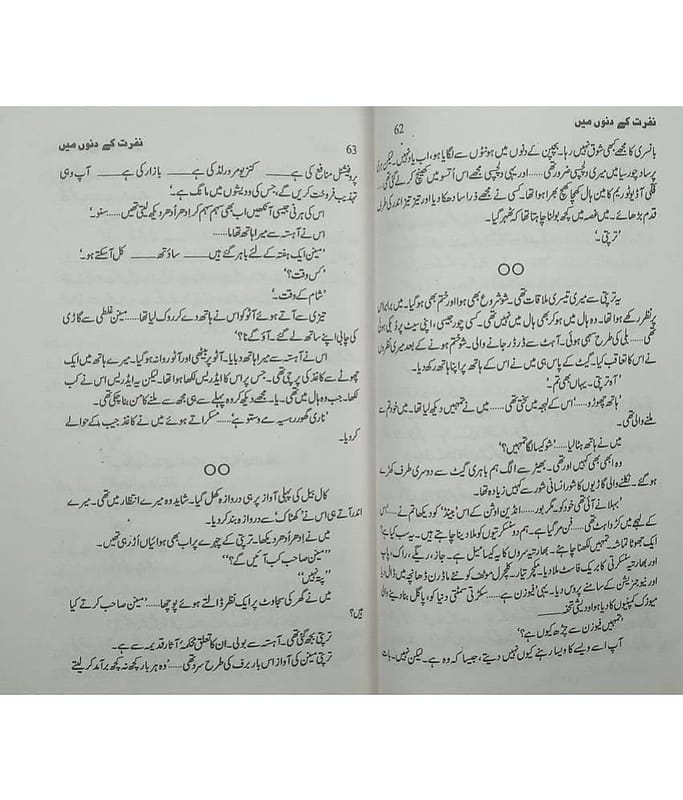 نفرت کے دنوں میں
62
بانسری کا مجھے کبھی شوق نہیں رہا۔ بچپن کے دنوں میں ہونٹوں سے لگایا ہو، اب یاد نہیں۔ لیکن ہری
پرساد چورسیا میں میری دلچسپی ضرور تھی ...... اور یہی دلچسپی مجھے اس اُتسو میں کھینچ کر لے گئی تھی
فکّی آڈیٹوریم کا مین ہال کھچا کھچ بھرا ہوا تھا۔ کسی نے مجھے ذرا سا دھکا دیا اور تیز تیز اندر کی طرف
قدم بڑھائے۔ میں غصہ میں کچھ بولنا چاہتا تھا کہ ٹھہر گیا۔
'ترپتی۔'
یہ ترپتی سے میری تیسری ملاقات تھی۔ شو شروع بھی ہوا اور ختم بھی ہوگیا۔ میں برابر اس
پر نظر رکھے ہوا تھا۔ وہ ہال میں ہو کر بھی ہال میں نہیں تھی۔ کسی چور جیسی، اپنی سیٹ پر دبکی ہوئی
تھی...... بلی کی طرح سہمی ہوئی۔ آہٹ سے ڈر ڈر جانے والی۔ شو ختم ہونے کے بعد میری نظروں
نے اس کا تعاقب کیا۔ گیٹ کے پاس ہی میں نے اس کے ہاتھ پر اپنا ہاتھ رکھ دیا۔
'آہ ترپتی۔ یہاں بھی تم۔'
'ہاتھ چھوڑو'...... اُس کے لہجہ میں سختی تھی ...... میں نے تمہیں دیکھ لیا تھا۔ میں خود تم سے
ملنے والی تھی۔
میں نے ہاتھ ہٹا لیا...... 'شو کیسا لگا تمہیں؟'
وہ ابھی بھی نہیں اور تھی۔ بھیڑ سے الگ ہم باہری گیٹ سے دوسری طرف کھڑے
ہوگئے۔ نکلنے والی گاڑیوں کا شور انسانی شور سے کہیں زیادہ تھا۔
'بہلانے آئی تھی خود کو۔ مگر بور...... انڈین اوشن کے اس 'بینڈ' کو دیکھا تم نے؟' اس
کے لہجے میں کڑواہٹ تھی...... فن مر گیا ہے۔ ہم دو سنسکرتیوں کو ملا دینا چاہتے ہیں۔ یہ سب کیا ہے؟
ایک جھوٹا تماشہ۔ تمہیں لکھنا چاہئے۔ بھارتیہ سروں کا یہ کیسا میل ہے۔ جاز، ریگے، راک، پاپ
اور بھارتیہ سنسکرتی کا بریک فاسٹ ملا دیا۔ مکسچر تیار۔ کلچرل موٹف کو نئے ماڈرن ڈھانچہ میں ڈال دیا
اور نیو جنریشن کے سامنے پروس دیا۔ یہی 'فیوزن' ہے...... سکڑتی سمٹتی دنیا کو، پاگل بنا دینے والی
میوزک کمپنیوں کا دیا ہوا ودیشی تحفہ
'تمہیں فیوزن سے چڑھ کیوں ہے؟'
آپ اسے ویسے کا ویسا رہنے کیوں نہیں دیتے، جیسا کہ وہ ہے۔ لیکن نہیں۔ بات
نفرت کے دنوں میں
63
پروفیشنل منافع کی ہے ___ کنزیومر ورلڈ کی ہے ___ بازار کی ہے ___ آپ وہی
تہذیب فروخت کریں گے، جس کی ودیشوں میں مانگ ہے۔'
اس کی ہرنی جیسی آنکھیں اب بھی سہم سہم کر ادھر اُدھر دیکھ لیتی تھیں...... سنو۔'
اس نے آہستہ سے میرا ہاتھ تھاما......
'سینن ایک ہفتہ کے لئے باہر گئے ہیں ___ ساؤتھ ___ کل آ سکتے ہو۔'
'کس وقت؟'
'شام کے وقت۔'
تیزی سے آتے ہوئے آٹو کو اس نے ہاتھ دے کر روک لیا تھا ...... سینن غلطی سے گاڑی
کی چابی اپنے ساتھ لے گئے۔ آؤ گے نا؟'
اس نے آہستہ سے میرا ہاتھ دبایا۔ آٹو پر بیٹھی اور آٹو روانہ ہو گیا۔ میرے ہاتھ میں ایک
چھوٹے سے کاغذ کی پرچی تھی۔ جس پر اس کا ایڈریس لکھا ہوا تھا۔ لیکن یہ ایڈریس اس نے کب
لکھا۔ جب وہ ہال میں تھی۔ یا۔ مجھے دیکھ کر وہ پہلے سے ہی مجھ سے ملنے کا من بنا چکی تھی۔
'ناری گھور رہسیہ مے وستو ہے'...... مسکراتے ہوئے میں نے کاغذ جیب کے حوالے
کردیا۔
کال بیل کی پہلی آواز پر ہی دروازہ کھل گیا۔ شاید وہ میرے انتظار میں تھی۔ میرے
اندر آتے ہی اس نے 'کھٹاک' سے دروازہ بند کر دیا۔
میں نے ادھر اُدھر دیکھا۔ ترپتی کے چہرے پر اب بھی ہوائیاں اُڑ رہی تھیں۔
''سینن صاحب کب آئیں گے؟''
''پتہ نہیں''
میں نے گھر کی سجاوٹ پر ایک نظر ڈالتے ہوئے پوچھا ...... ''سینن صاحب کرتے کیا
ہیں؟
ترپتی بجھ گئی تھی۔ آہستہ سے بولی۔ ان کا تعلق محکمۂ آثار قدیمہ سے ہے۔
ترپتی سینن کی آواز اس بار برف کی طرح سرد تھی ...... 'وہ ہر بار کچھ نہ کچھ برآمد کر لیتے